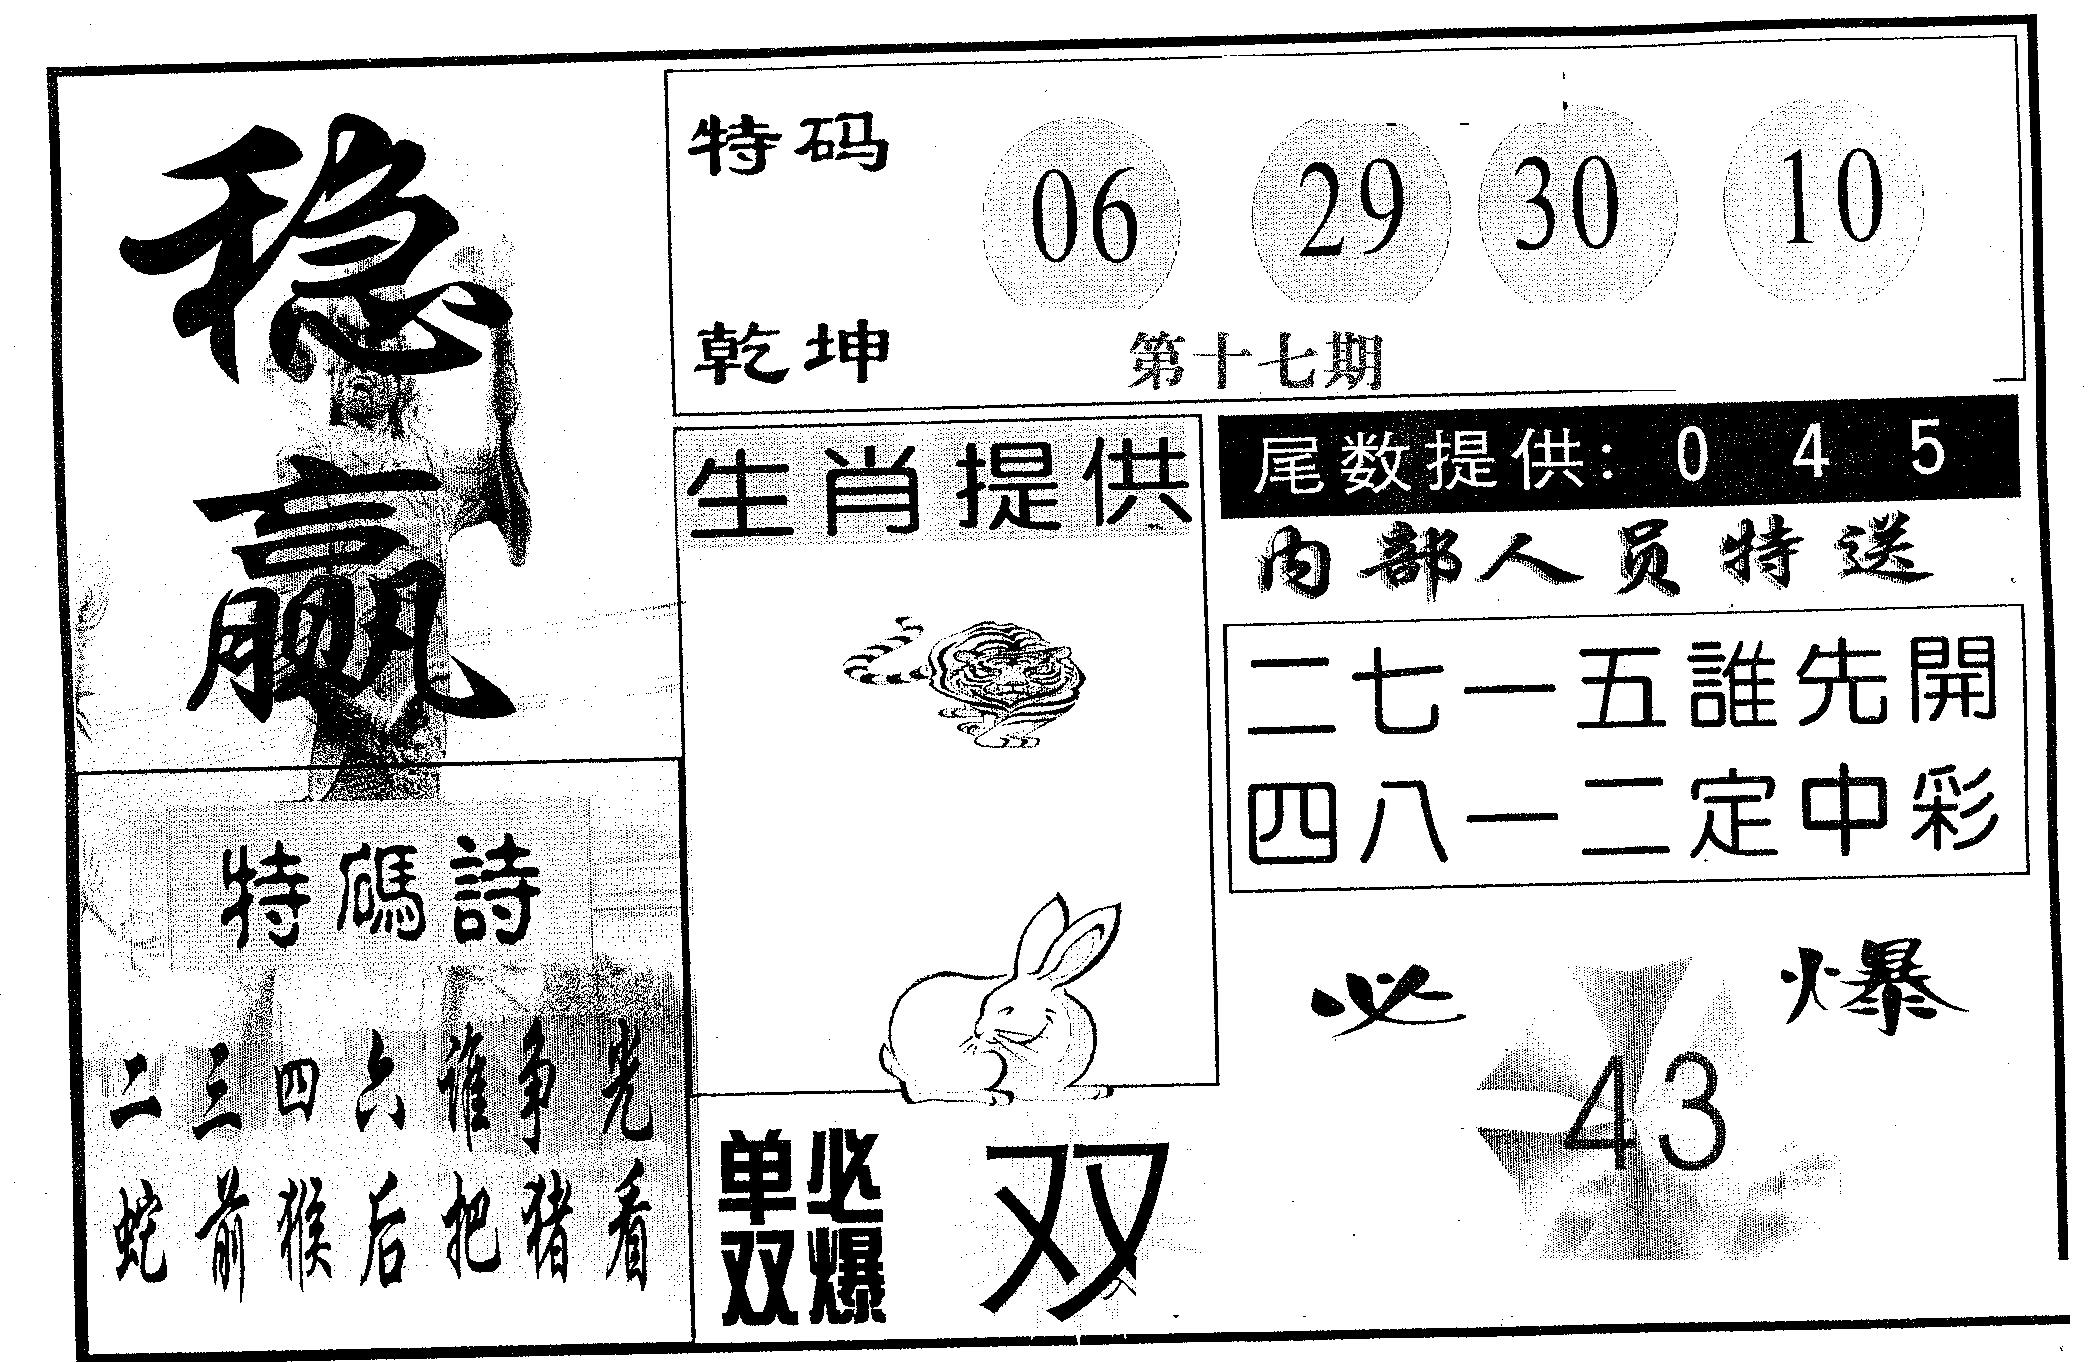 稳赢
特码 06 29 30 10
乾坤 第十七期
生肖提供
尾数提供：0 4 5
内部人员特送
二七一五誰先開
四八一二定中彩
必爆
43
特碼詩
二三四六谁争先
蛇前猴后把猪看
单双必爆 双